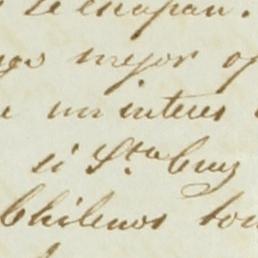 se escapan.
mejor op
un interes
si Sta. Cruz
Chilenos tom